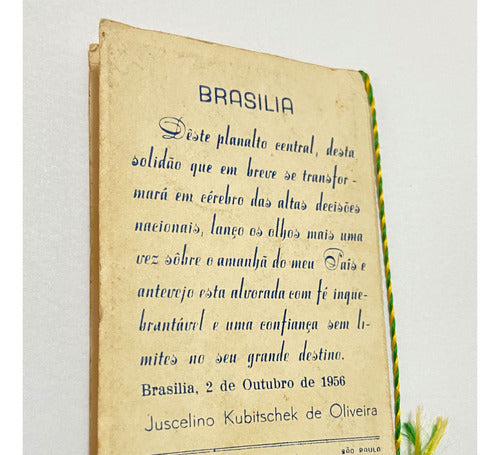 BRASILIA
Dêste planalto central, desta
solidão que em breve se transfor-
mará em cérebro das altas decisões
nacionais, lanço os olhos mais uma
vez sôbre o amanhã do meu País e
antevejo esta alvorada com fé inque-
brantável e uma confiança sem li-
mites no seu grande destino.
Brasilia, 2 de Outubro de 1956
Juscelino Kubitschek de Oliveira
SÃO PAULO